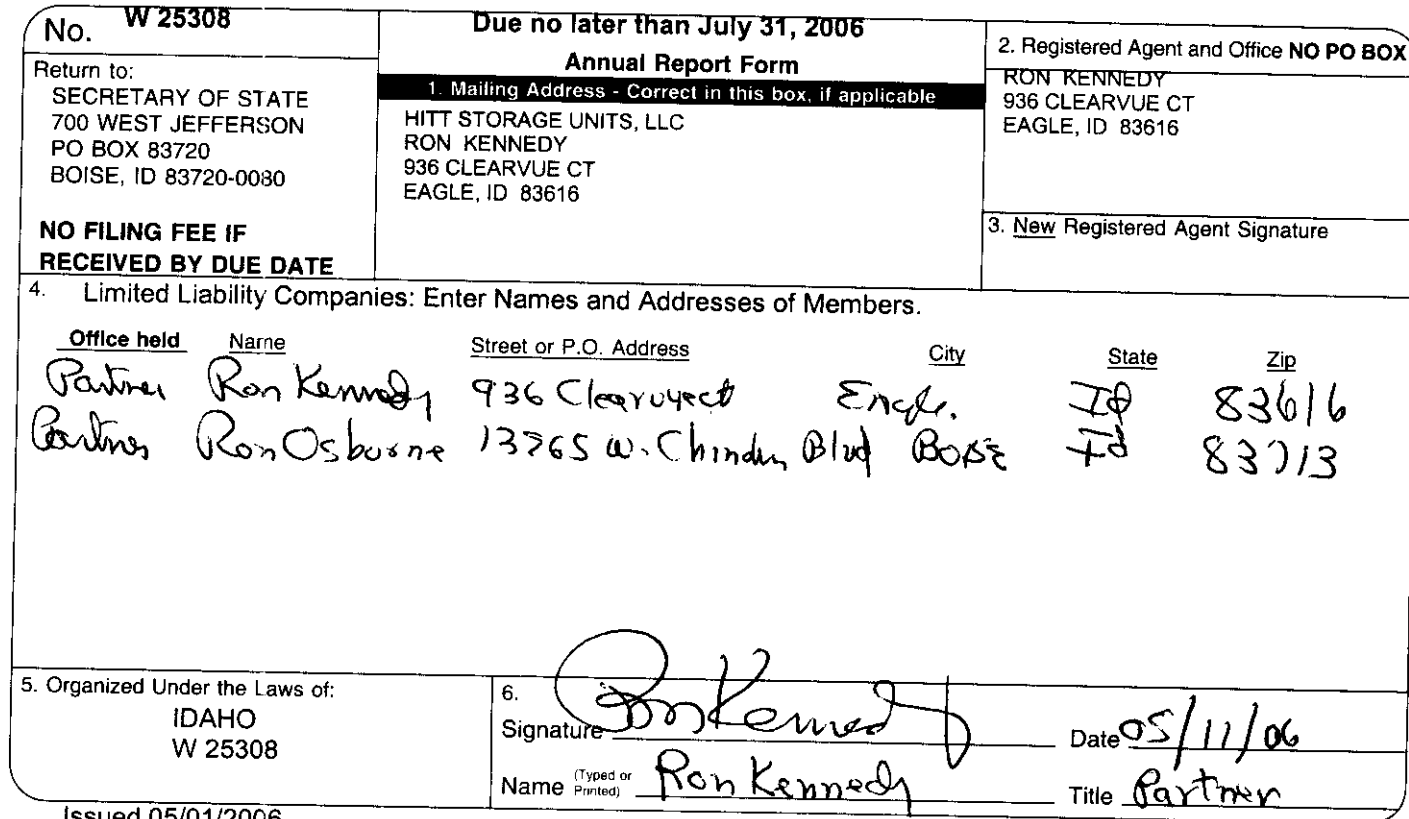 No. W 25308
Return to:
SECRETARY OF STATE
700 WEST JEFFERSON
PO BOX 83720
BOISE, ID 83720-0080
NO FILING FEE IF
RECEIVED BY DUE DATE
Due no later than July 31, 2006
Annual Report Form
1. Mailing Address - Correct in this box, if applicable
HITT STORAGE UNITS, LLC
RON KENNEDY
936 CLEARVUE CT
EAGLE, ID 83616
2. Registered Agent and Office NO PO BOX
RON KENNEDY
936 CLEARVUE CT
EAGLE, ID 83616
3. New Registered Agent Signature
4. Limited Liability Companies: Enter Names and Addresses of Members.
Office held Name Street or P.O. Address City State Zip
Partner Ron Kennedy 936 Clearvue ct Eagle. Id 83616
Partner Ron Osburne 13765 W. Chinden Blvd BOISE Id 83713
5. Organized Under the Laws of:
IDAHO
W 25308
6.
Signature Ron Kennedy Date 05/11/06
Name (Typed or Printed) Ron Kennedy Title Partner
Issued 05/01/2006